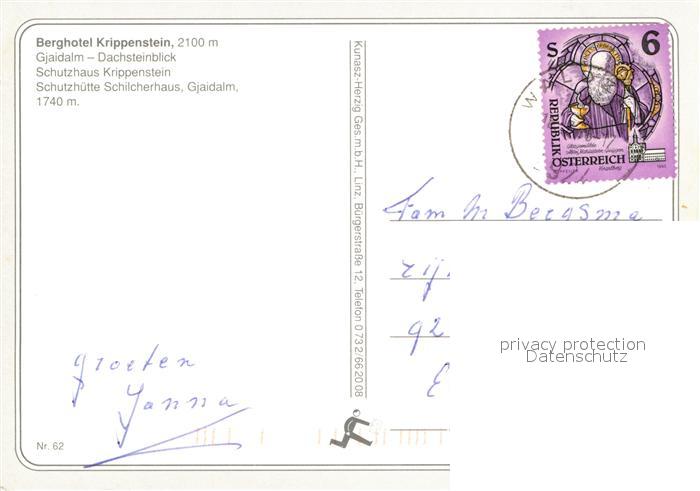 Berghotel Krippenstein, 2100 m
Gjaidalm – Dachsteinblick
Schutzhaus Krippenstein
Schutzhütte Schilcherhaus, Gjaidalm,
1740 m.
groeten
Janna
Nr. 62
Kunasz-Herzig Ges.m.b.H., Linz, Bürgerstraße 12, Telefon 0 73 2/66 20 08
S 6
REPUBLIK
ÖSTERREICH
Fam M Bergsma
zij
92
E
privacy protection
Datenschutz